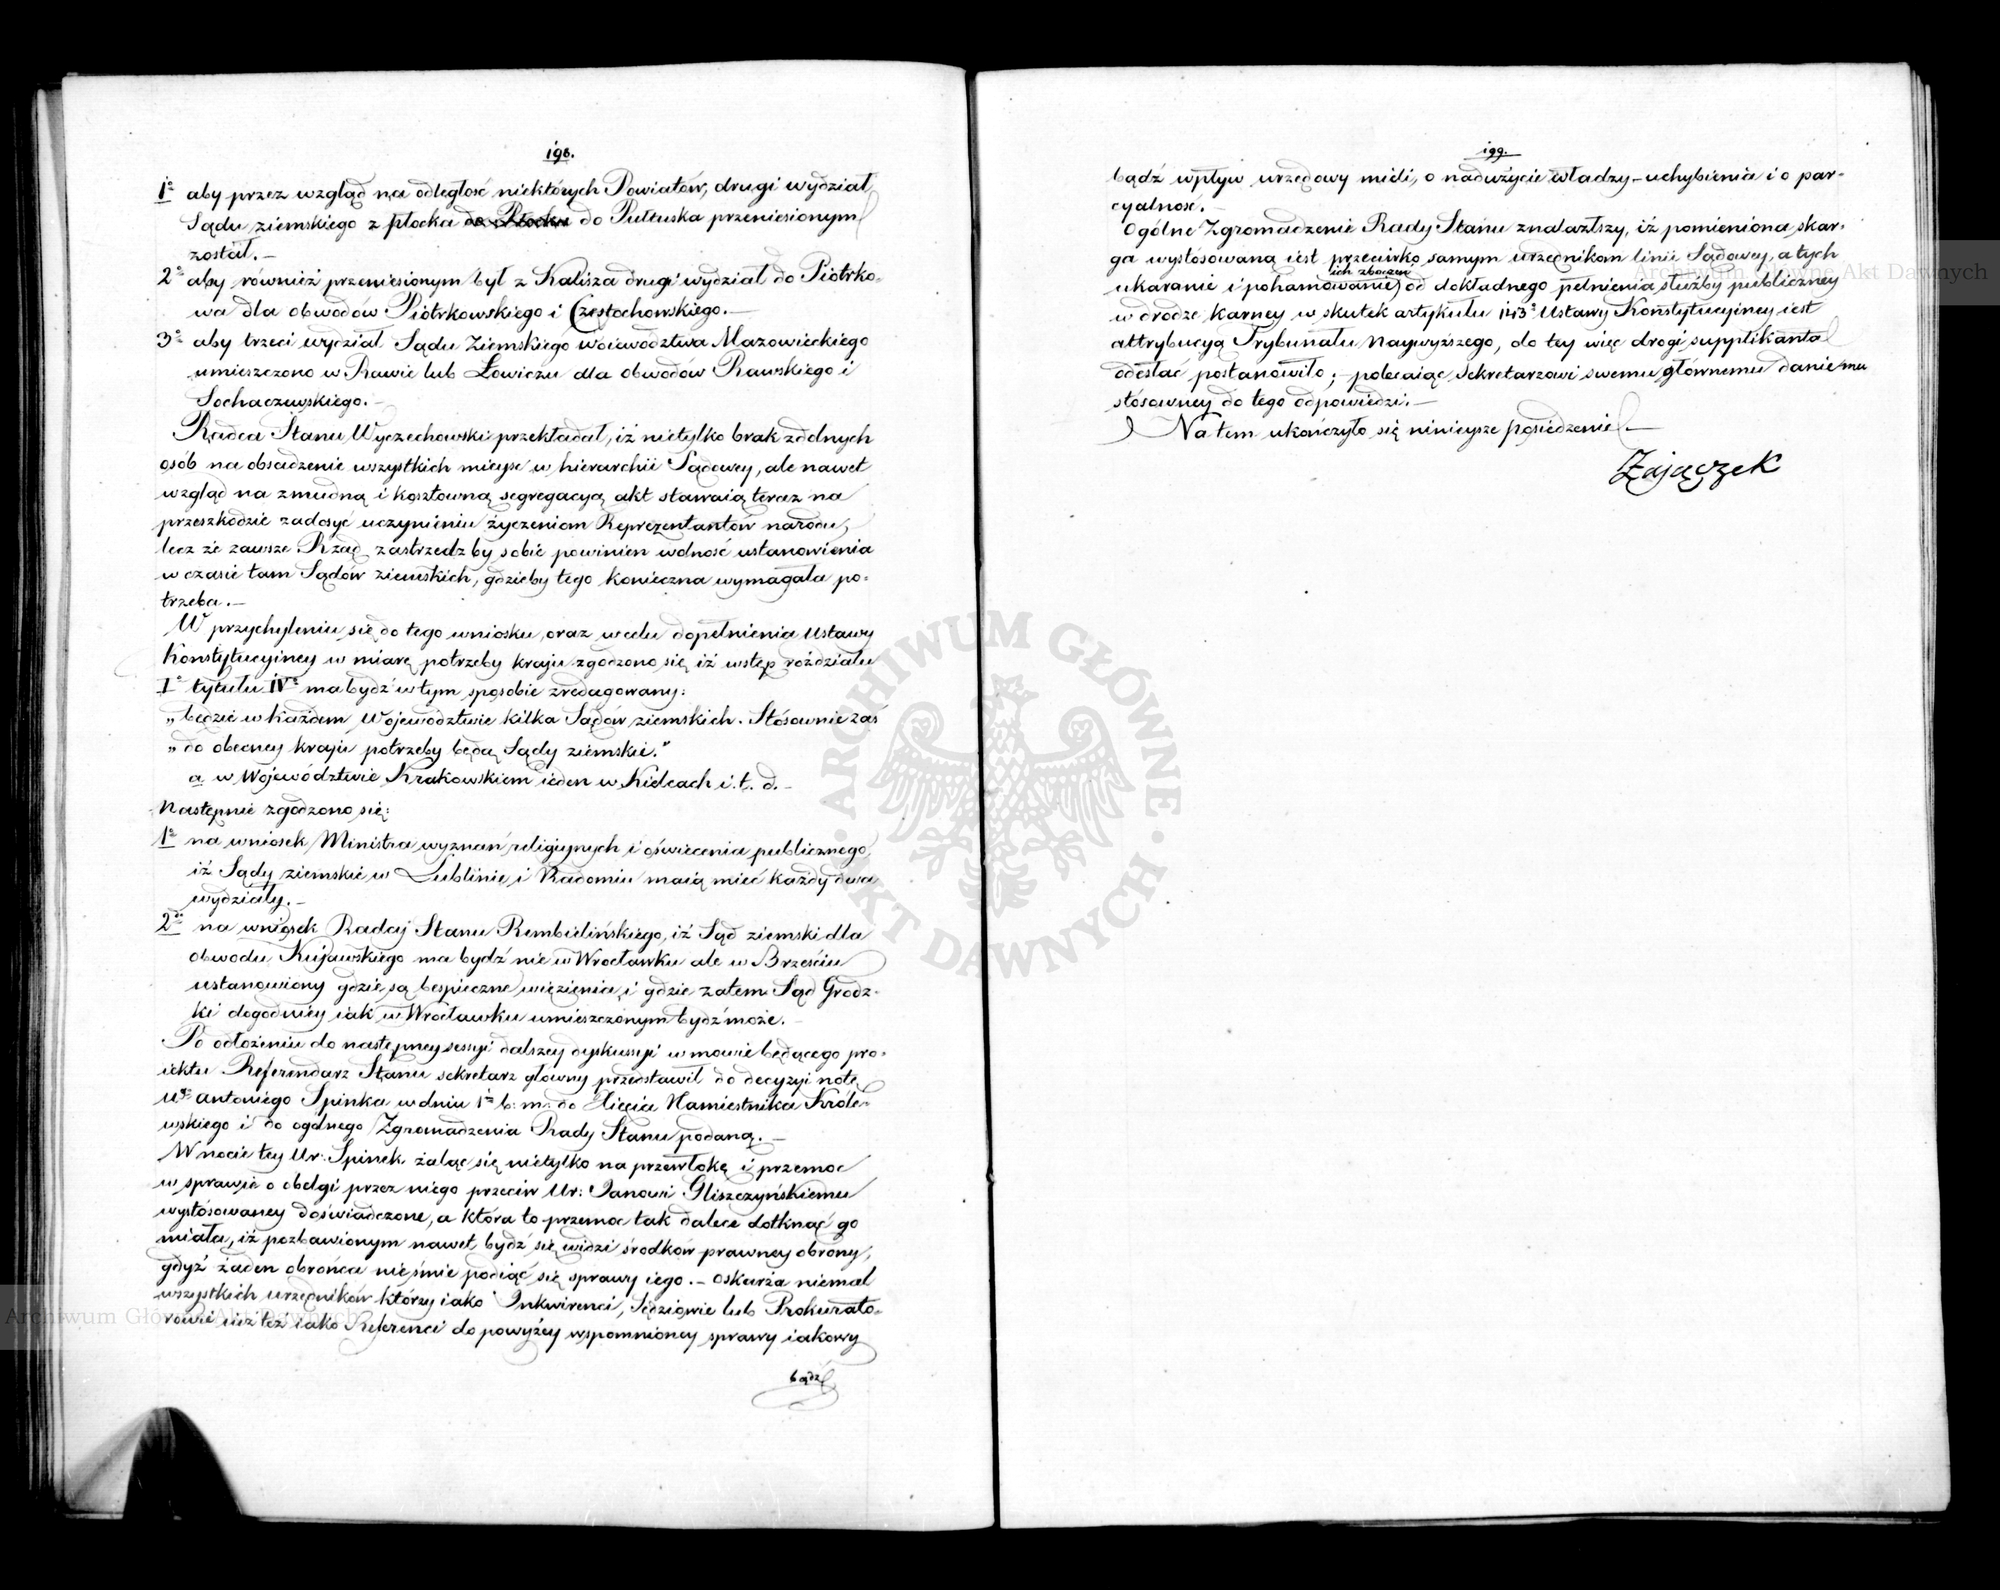 198.
1º aby przez wzgląd na odległość niektórych Powiatów, drugi wydział
Sądu ziemskiego z płocka do Płocka do Pułtuska przeniesionym
został.—
2º aby również przeniesionym był z Kalisza drugi wydział do Piotrko-
wa dla obwodów Piotrkowskiego i Częstochowskiego.—
3º aby trzeci wydział Sądu Ziemskiego województwa Mazowieckiego
umieszczono w Rawie lub Łowiczu dla obwodów Rawskiego i
Sochaczewskiego.—
Radca Stanu Wyczechowski przekładał, iż nietylko brak zdolnych
osób na obsadzenie wszystkich mieysc w hierarchii Sądowey, ale nawet
wzgląd na żmudną i kosztowną segregacyą akt stawaią teraz na
przeszkodzie zadosyć uczynieniu życzeniom Reprezentantów narodu,
lecz że zawsze Rząd zastrzedz by sobie powinien wolność ustanowienia
w czasie tam Sądów ziemskich, gdzieby tego konieczna wymagała po-
trzeba.—
W przychyleniu się do tego wniosku, oraz w celu dopełnienia Ustawy
Konstytucyiney w miarę potrzeby kraju zgodzono się iż wstęp rozdziału
Iº tytułu IVº ma bydź w tym sposobie zredagowany:
„będzie w każdem Województwie kilka Sądów ziemskich. Stósownie zaś
„do obecney kraju potrzeby będą Sądy ziemskie."
a w Województwie Krakowskiem ieden w Kielcach i. t. d.—
Następnie zgodzono się:
1º na wniosek Ministra wyznań religiynych i oświecenia publicznego,
iż Sądy ziemskie w Lublinie i Radomiu maią mieć każdy dwa
wydziały.—
2do na wniosek Radcy Stanu Rembielińskiego, iż Sąd ziemski dla
obwodu Kujawskiego ma bydź nie w Wrocławku ale w Brześciu
ustanowiony gdzie są bespieczne więzienia, i gdzie zatem Sąd Grodz-
ki dogodniey iak w Wrocławku umieszczonym bydź może.—
Po odłożeniu do następney sessyi dalszey dyskussyi w mowie będącego pro-
iektu Referendarz Stanu sekretarz główny przedstawił do decyzyi notę
Ugo antoniego Spinka w dniu 1m b: m: do Xięcia Namiestnika Króle-
wskiego i do ogólnego Zgromadzenia Rady Stanu podaną.—
W nocie tey Ur: Spinek żaląc się nietylko na przewłokę i przemoc
w sprawie o obelgi przez niego przeciw Ur: Janowi Gliszczyńskiemu
wystósowaney doświadczone, a która to przemoc tak dalece dotknąć go
miała, iż pozbawionym nawet bydź się widzi środków prawney obrony,
gdyż żaden obrońca nie śmie podiąć się sprawy iego.— oskarża niemal
wszystkich urzędników którzy iako Inkwirenci, Sędziowie lub Prokurato-
rowie iuż też iako Referenci do powyżey wspomnioney sprawy iakowy
bądź
199.
bądź wpływ urzędowy mieli, o nadużycie władzy—uchybienia i o par-
cyalność.—
Ogólne Zgromadzenie Rady Stanu znalazłszy, iż pomieniona skar-
ga wystósowaną iest przeciwko samym urzędnikom linii Sądowey, a tych
ich zboczeń
ukaranie i pohamowanie od dokładnego pełnienia służby publiczney
w drodze karney w skutek artykułu 143º Ustawy Konstytucyiney iest
attrybucyą Trybunału Naywyższego, do tey więc drogi supplikanta
odesłać postanowiło; — polecaiąc Sekretarzowi swemu głównemu danie mu
stósowney do tego odpowiedzi.—
Na tem ukończyło się ninieysze posiedzenie.—
Zajączek
ARCHIWUM GŁÓWNE AKT DAWNYCH
Archiwum Główne Akt Dawnych
Archiwum Główne Akt Dawnych